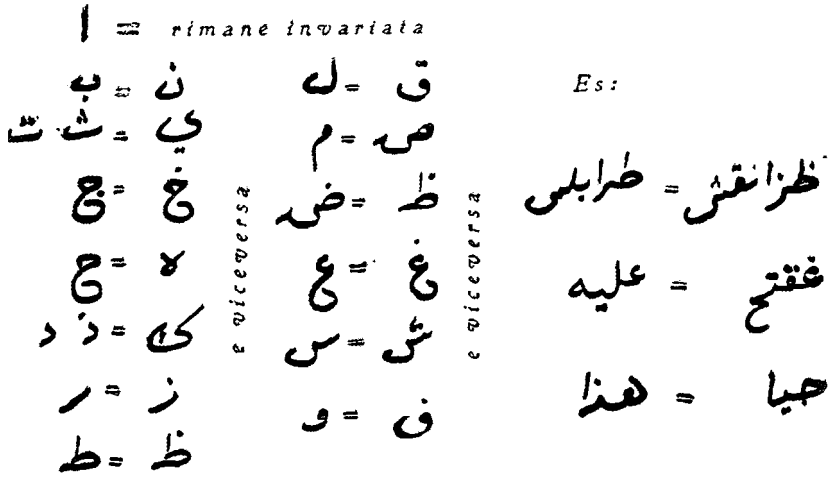 ا = rimane invariata
ن = ب
ي = ث ت
خ = ج
ه = ح
ك = ذ د
ز = ر
ظ = ط
e viceversa
ق = ل
ص = م
ظ = ض
غ = ع
ش = س
ف = و
e viceversa
Es:
ظزانقش = طرابلس
غقتح = عليه
حيا = هذا